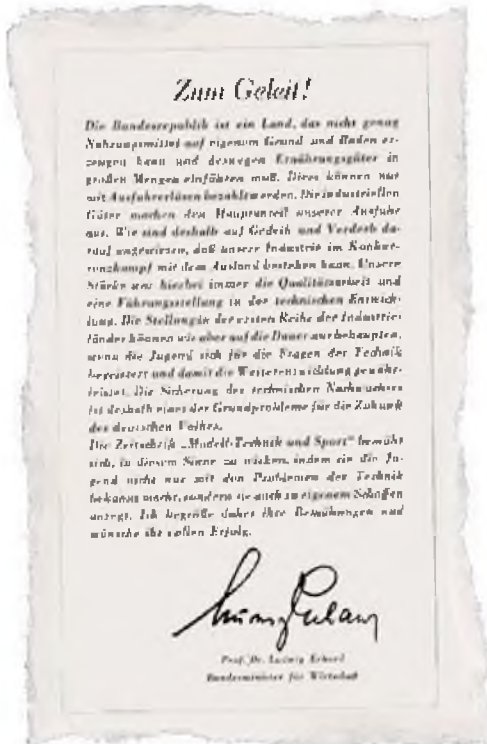 Zum Geleit!
Die Bundesrepublik ist ein Land, das nicht genug
Nahrungsmittel auf eigenem Grund und Boden er-
zeugen kann und deswegen Ernährungsgüter in
großen Mengen einführen muß. Diese können nur
mit Ausfuhrerlösen bezahlt werden. Die industriellen
Güter machen den Hauptanteil unserer Ausfuhr
aus. Wir sind deshalb auf Gedeih und Verderb da-
rauf angewiesen, daß unsere Industrie im Konkur-
renzkampf mit dem Ausland bestehen kann. Unsere
Stärke war hierbei immer die Qualitätsarbeit und
eine Führungsstellung in der technischen Entwick-
lung. Die Stellung in der ersten Reihe der Industrie-
länder können wir aber auf die Dauer nur behaupten,
wenn die Jugend sich für die Fragen der Technik
begeistert und damit die Weiterentwicklung gewähr-
leistet. Die Sicherung des technischen Nachwuchses
ist deshalb eines der Grundprobleme für die Zukunft
des deutschen Volkes.
Die Zeitschrift „Modell-Technik und Sport“ bemüht
sich, in diesem Sinne zu wirken, indem sie die Ju-
gend nicht nur mit den Problemen der Technik
bekannt macht, sondern sie auch zu eigenem Schaffen
anregt. Ich begrüße daher ihre Bemühungen und
wünsche ihr vollen Erfolg.
Prof. Dr. Ludwig Erhard
Bundesminister für Wirtschaft